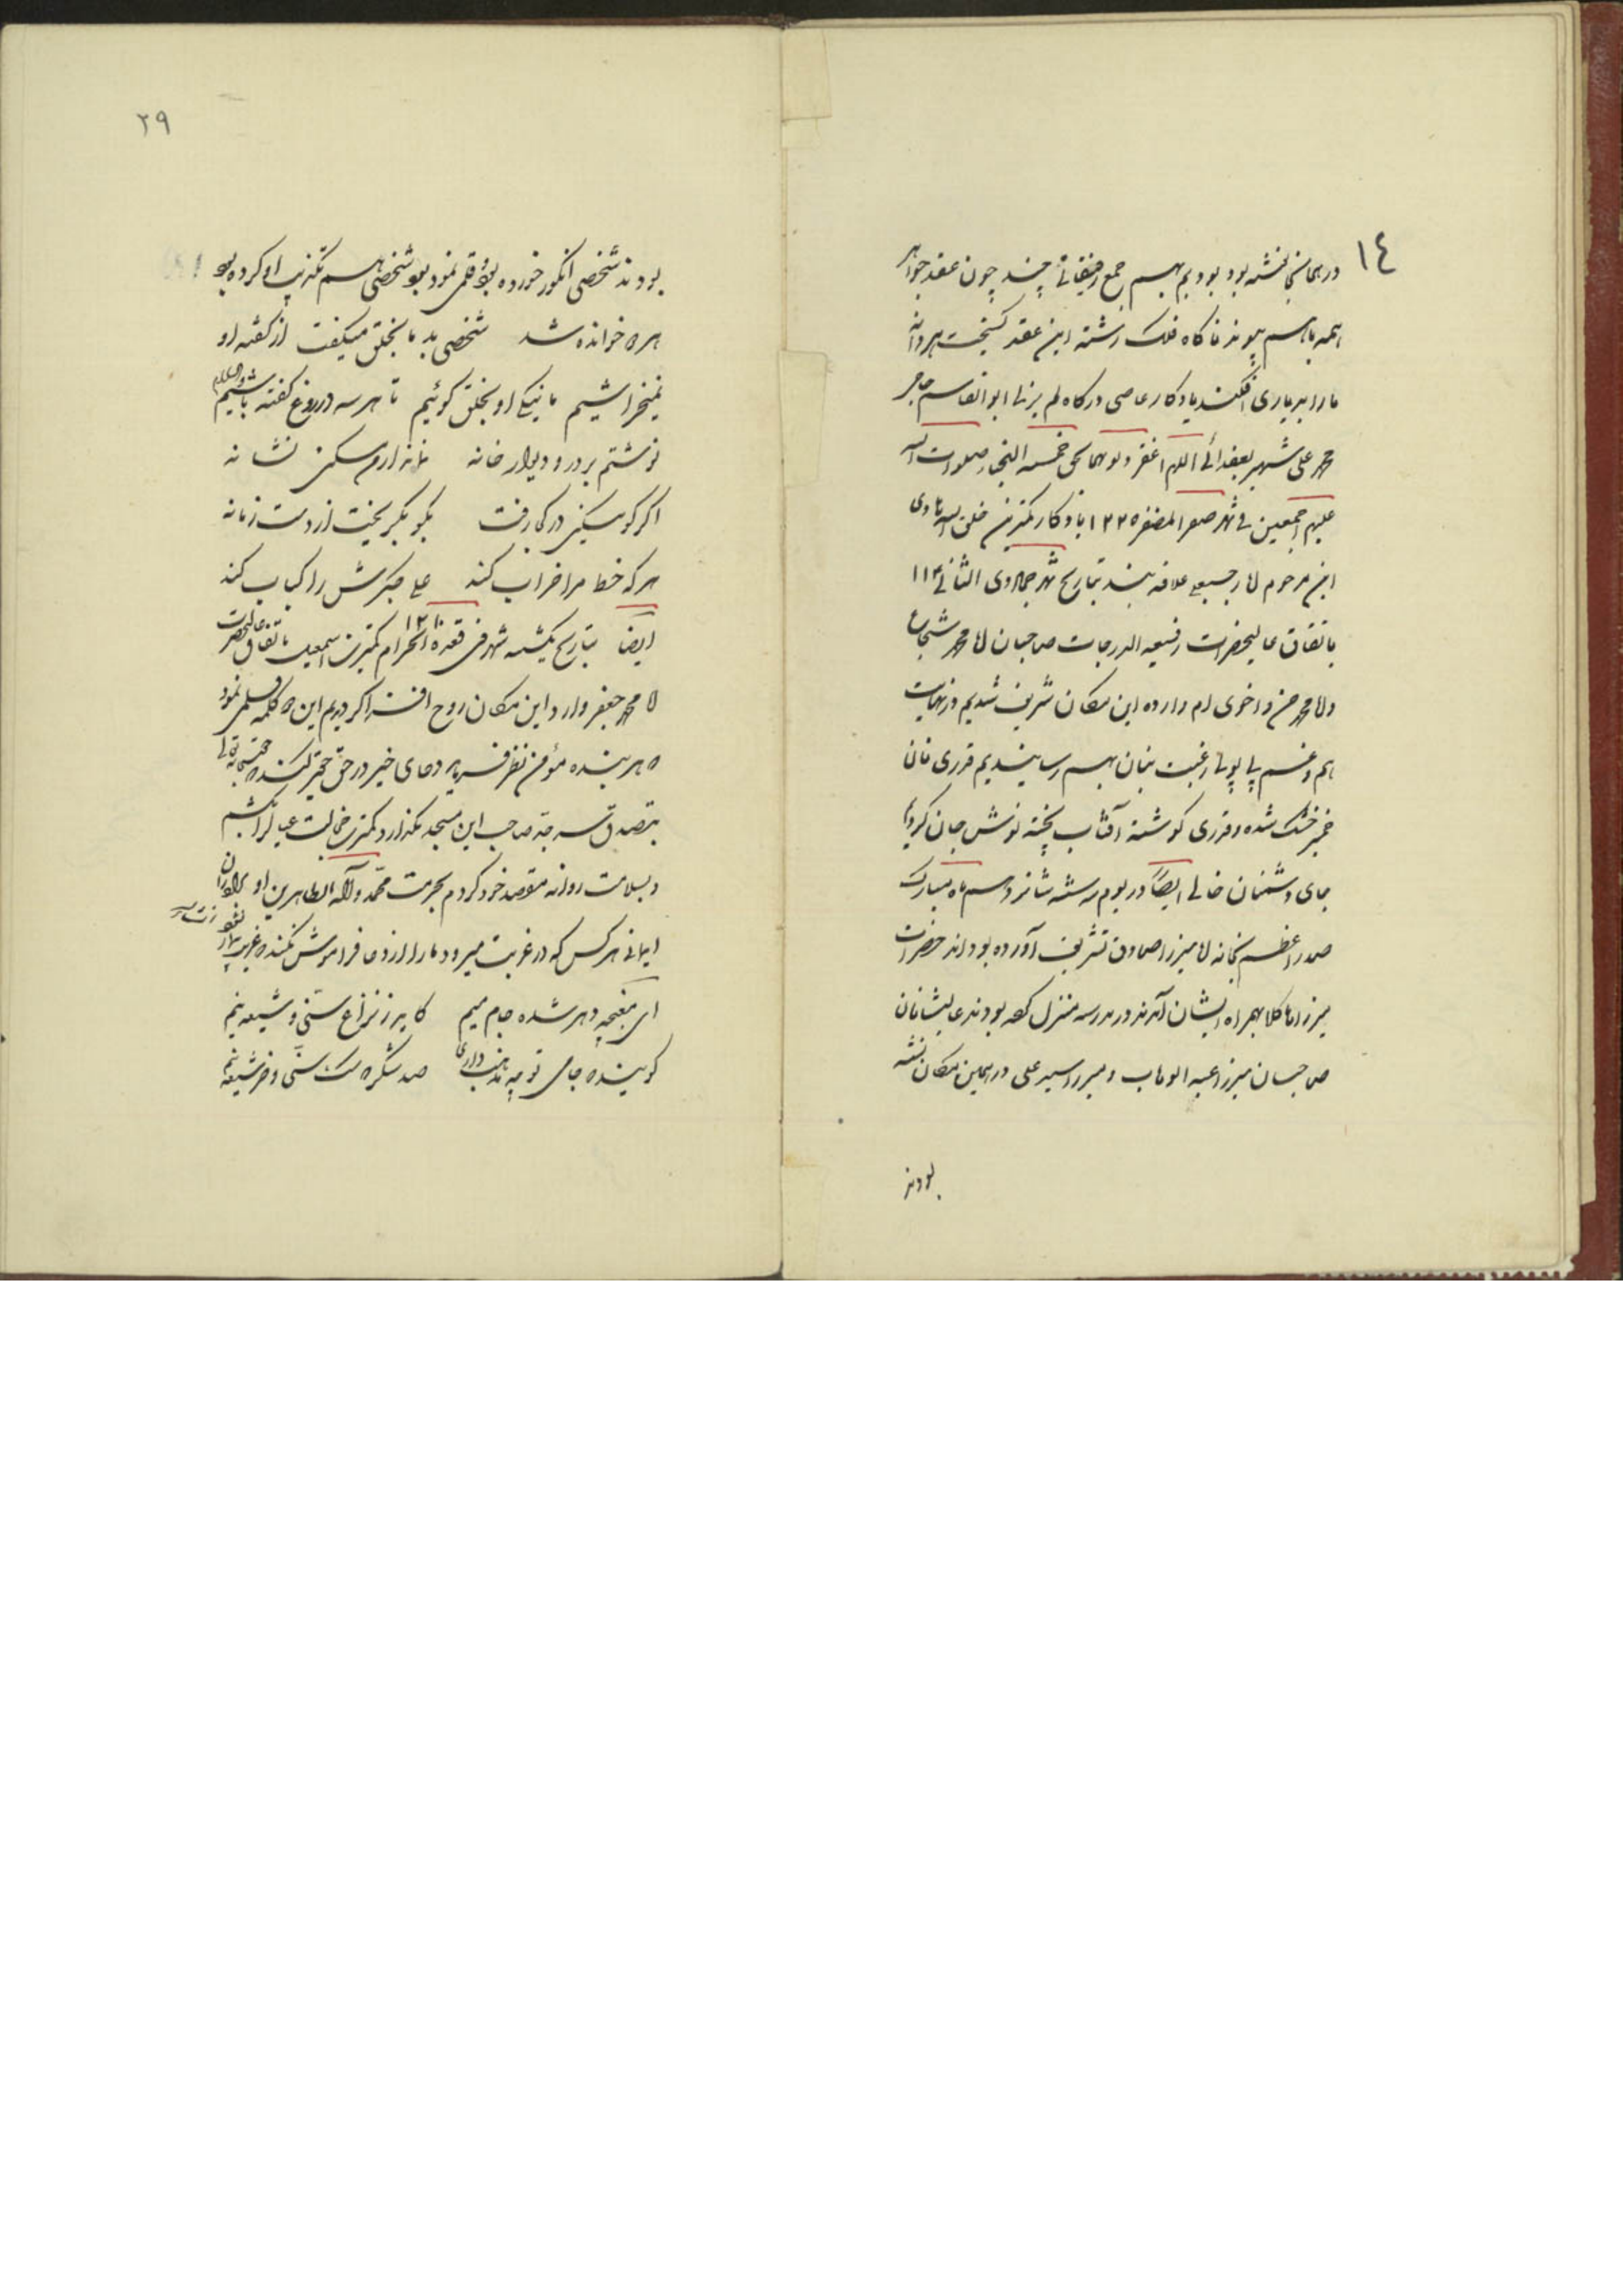 ١٤
در همانجا نشسته بود بودیم بهم جمع رفیقانی چند چون عقد جواهر
همه با هم پیوند ناگاه فلک رشته این عقد گسیخت هر دانه
ما را بدیاری افکند یادکار عاصی درگاه لم یزلی ابوالقاسم تاجر
محمد علی شهیر بفدائی اللهم اغفر ولوهما بحق خمسه النجباء صلوات الله
علیهم اجمعین فی شهر صفر المظفر ١٢٢٥ یادکار کمترین خلق الله هادی
ابن مرحوم لا رجبعلی علاقه بند بتاریخ شهر جمادی الثانی
باتفاق عالیحضرات رفیعه الدرجات صاحبان لا محمد شجاع
ولا محمد حسن و اخوی ام وارده این مکان شریف شدیم در نهایت
هم و غم پی پولی رغبت بنان بهم رسانیدیم قدری نان
خمیر خشک شده و قدری کوشت آفتاب پخته نوش جان کردیم
جای دشمنان خالی ایضاً در یوم سه شنبه شانزدهم ماه مبارک
صدر اعظم بخانه لا میرزا صادق تشریف آورده بودند حضرات
میرزاها کلا بهمراه ایشان آمدند در مدرسه منزل کرده بودند عالیشانان
صاحبان میرزا عبد الوهاب و میرزا سید علی در همین مکان نشسته
بودند
٢٩
بودند شخصی انکور خورده بود قلمی نمود بود شخصی هم تکذیب او کرده بود
هر دو خوانده شد شخصی بد ما بخلق میکفت از کفته او
نمیخراشیم ما نیکی او بخلق کوئیم تا هر سه دروغ کفته باشیم والسلام
نوشتم بر در و دیوار خانه بماند از من مسکین نشانه
اکر کویند مسکین در کجا رفت بکو بکریخت از دست زمانه
هر که خط مرا خراب کند علی جکرش را کباب کند
ایضا بتاریخ یکشنبه شهر ذی قعدة الحرام ١٢١٠ کمترین اسمعیل باتفاق عالیحضرت
لا محمد جعفر وارد این مکان روح افزا کردیدیم این دو کلمه قلمی نمود
که هر بنده مؤمن نظر فرماید دعای خیر در حق حقیر کند که حقتعالی
بتصدق سر جد صاحب این مسجد نکذارد کمترین خجالت عیال را بکشم
و بسلامت روانه مقصد خود کردم بحرمت محمد و آله الطاهرین او برادران
ایمانی هر کس که در غربت میرود ما را از دعا فراموش نکند که غریب
ای مغبچه دهر بده جام میم کامد ز نزاع سنی و شیعه قیم
کویند که جامی تو چه مذهب داری صد شکر که سک سنی و خر شیعه نیم